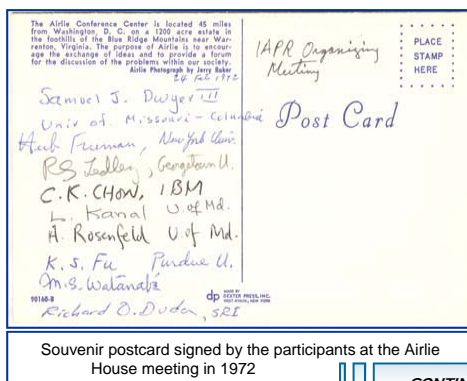 The Airlie Conference Center is located 45 miles
from Washington, D. C. on a 1200 acre estate in
the foothills of the Blue Ridge Mountains near War-
renton, Virginia. The purpose of Airlie is to encour-
age the exchange of ideas and to provide a forum
for the discussion of the problems within our society.
Airlie Photograph by Jerry Baker
24 Feb 1972
Samuel J. Dwyer III
Univ of. Missouri - Columbia
Herb Freeman, New York Univ.
RS Ledley, Georgetown U.
C.K. CHOW, IBM
L. Kanal U. of Md.
A. Rosenfeld U of Md.
K. S. Fu Purdue U.
M.S. Watanabe
90160-B
Richard O. Duda, SRI
dp MADE BY
DEXTER PRESS, INC.
WEST NYACK, NEW YORK
IAPR Organizing
Meeting
PLACE
STAMP
HERE
Post Card
Souvenir postcard signed by the participants at the Airlie
House meeting in 1972
CONTIN